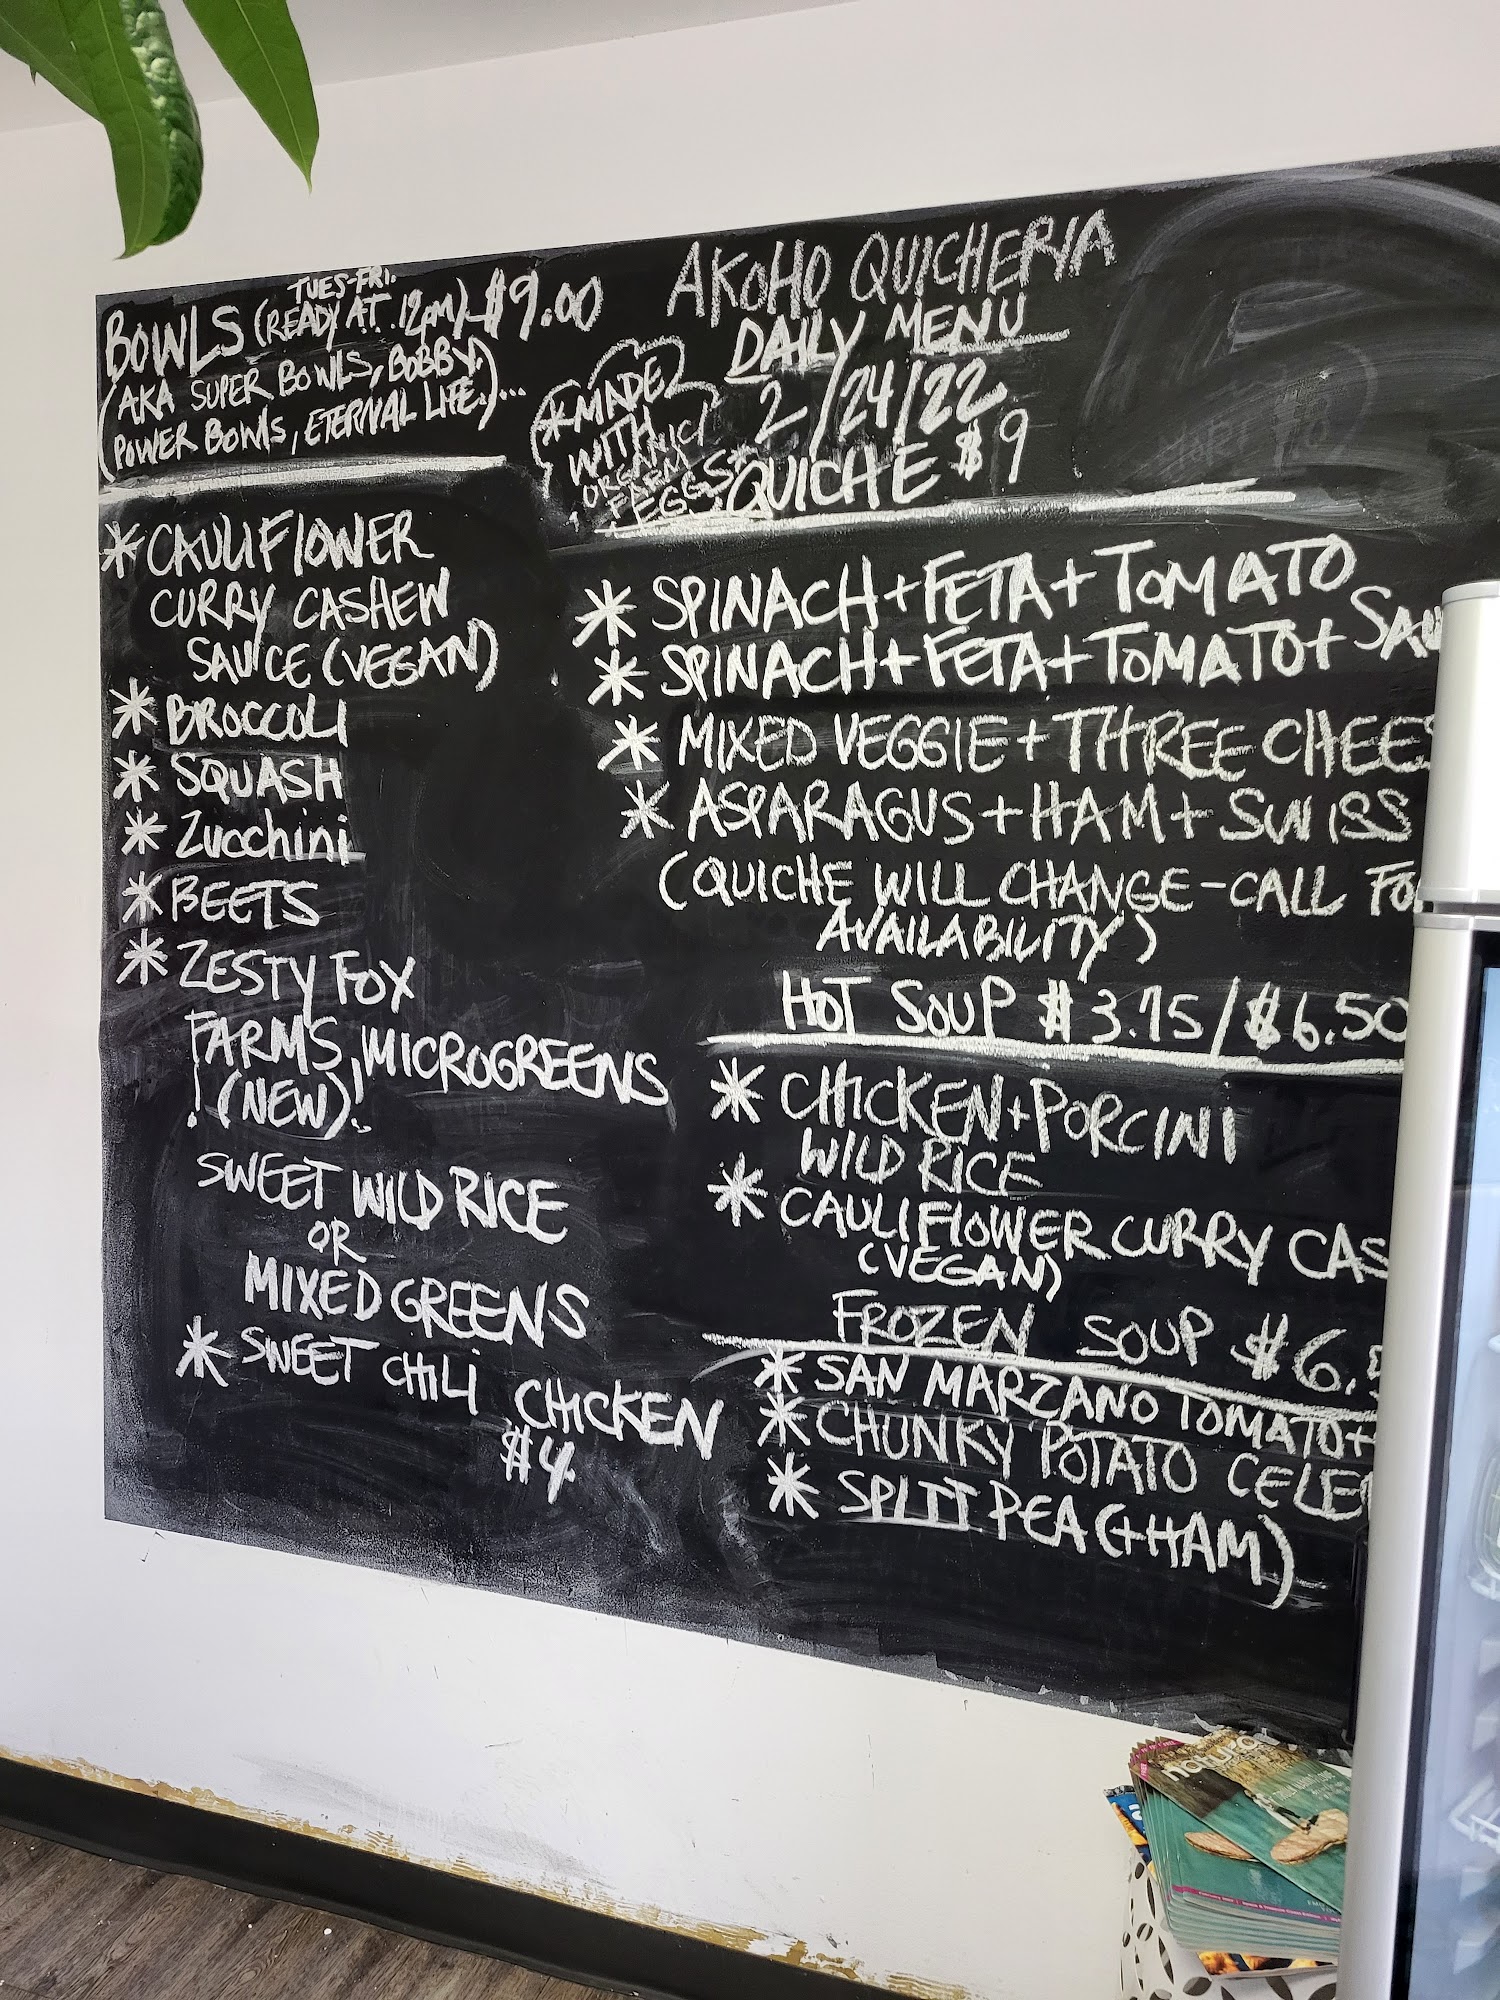 TUES-FRI.
BOWLS (READY AT 12pm) $9.00
(AKA SUPER BOWLS, BOBBY,
POWER BOWLS, ETERNAL LIFE.)...
* CAULIFLOWER
CURRY CASHEW
SAUCE (VEGAN)
* BROCCOLI
* SQUASH
* Zucchini
* BEETS
* ZESTY FOX
FARMS MICROGREENS
!(NEW)!
SWEET WILD RICE
OR
MIXED GREENS
* SWEET CHILI CHICKEN
$4
AKOHO QUICHERIA
DAILY MENU
2/24/22
*MADE
WITH
ORGANIC
FARM
EGGS*
QUICHE $9
* SPINACH + FETA + TOMATO
* SPINACH + FETA + TOMATO + SAU
* MIXED VEGGIE + THREE CHEES
* ASPARAGUS + HAM + SWISS
(QUICHE WILL CHANGE - CALL FO
AVAILABILITY)
HOT SOUP $3.75/$6.50
* CHICKEN + PORCINI
WILD RICE
* CAULIFLOWER CURRY CAS
(VEGAN)
FROZEN SOUP $6.
* SAN MARZANO TOMATO +
* CHUNKY POTATO CELE
* SPLIT PEA (+HAM)
natural